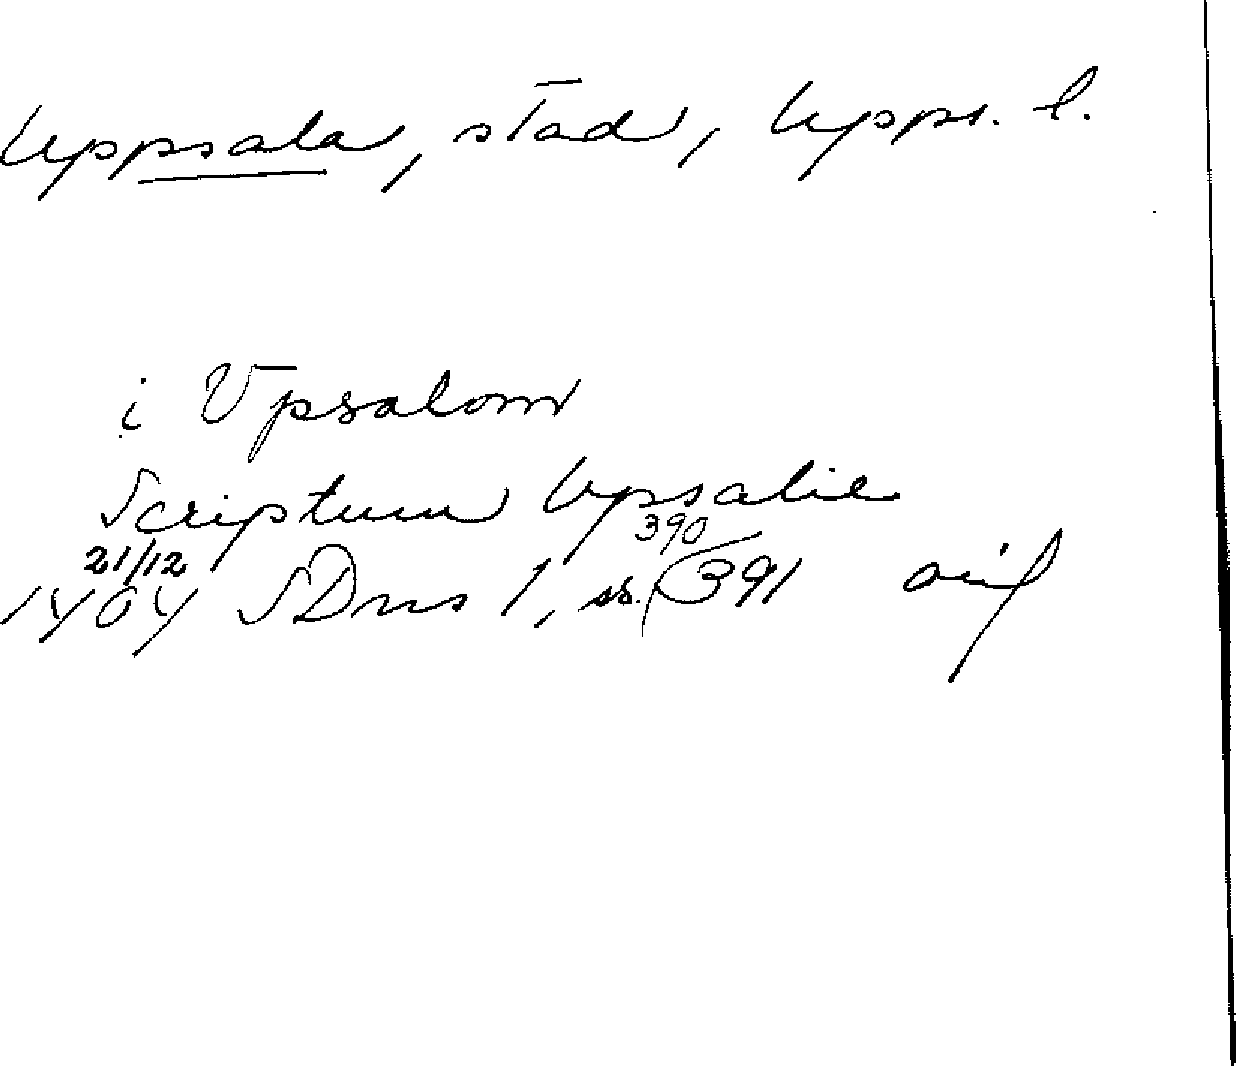 Uppsala, stad, Upps. l.
i Vpsalom
Scriptum Upsalie
21/12 390
1404 SDns 1, s. 391 orig